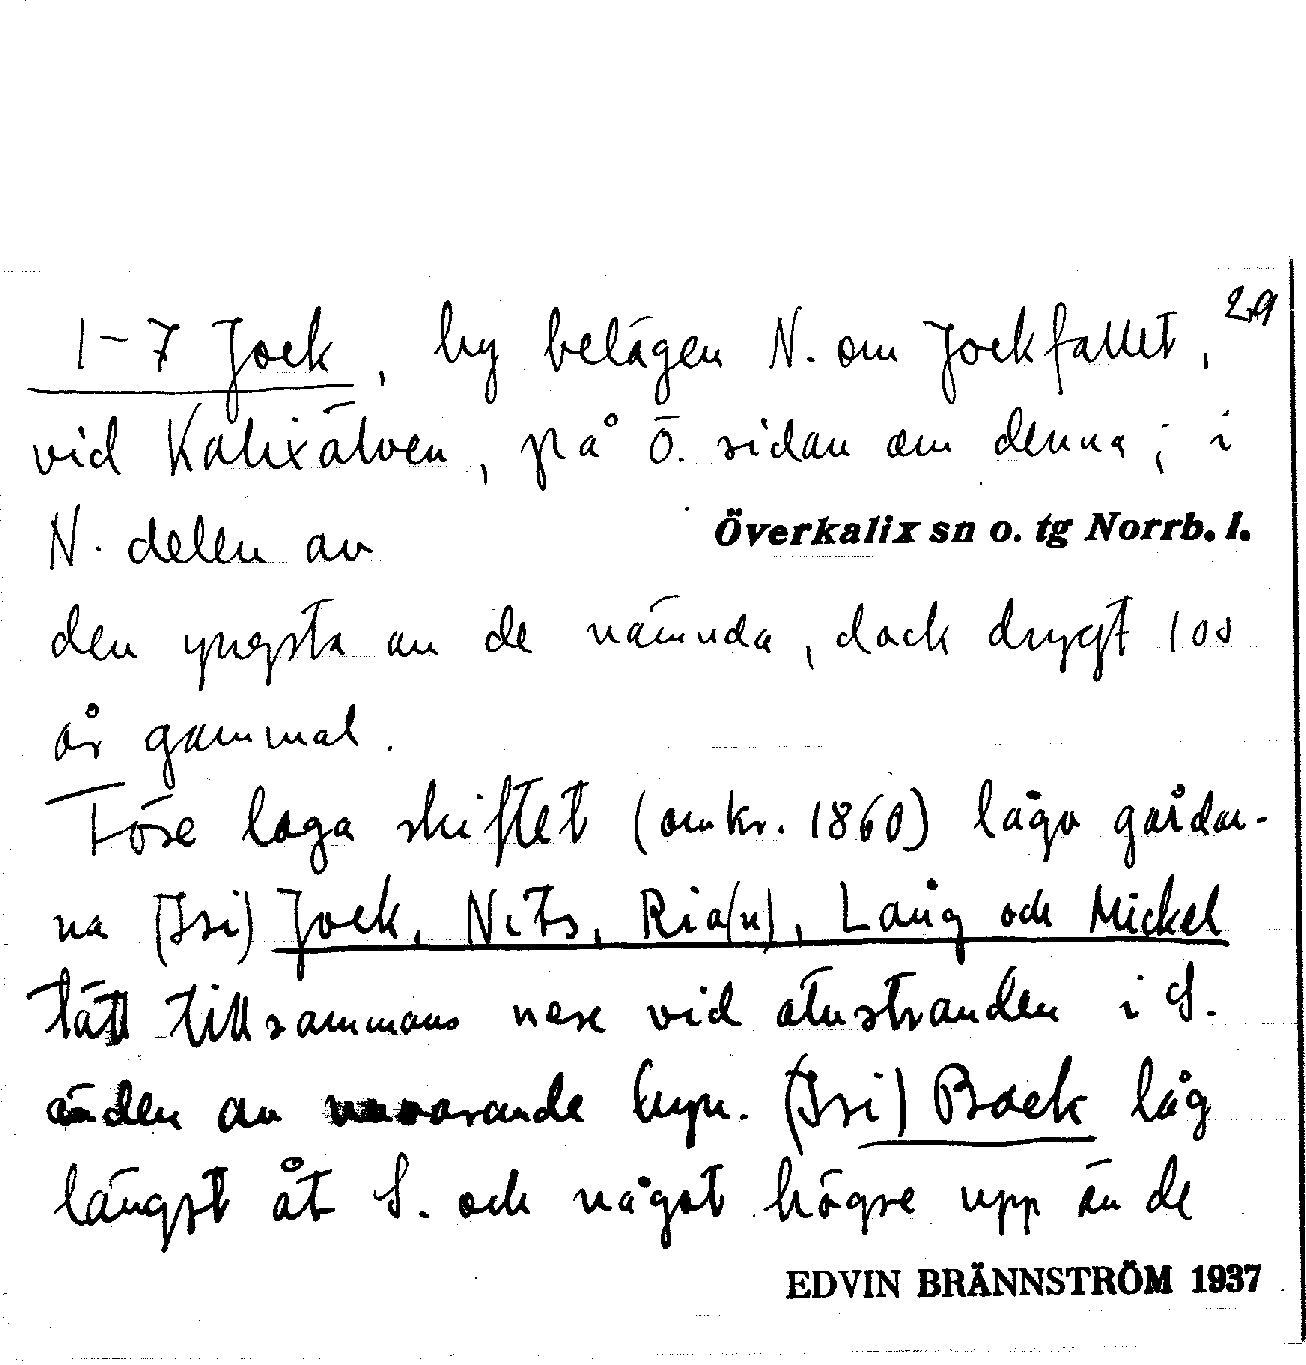 29
1-7 Jock, by belägen N. om Jockfallet,
vid Kalixälven, på ö. sidan om denna; i
N. delen av
Överkalix sn o. tg Norrb. l.
den yngsta av de nämnda, dock drygt 100
år gammal.
Före laga skiftet (omkr. 1860) lågo gårdar-
na (Isi) Jock, Nils, Ria(n), Lång och Mickel
tätt tillsammans nere vid älvstranden i S.
änden av nuvarande byn. (Isi) Back låg
längst åt S. och något högre upp än de
EDVIN BRÄNNSTRÖM 1937